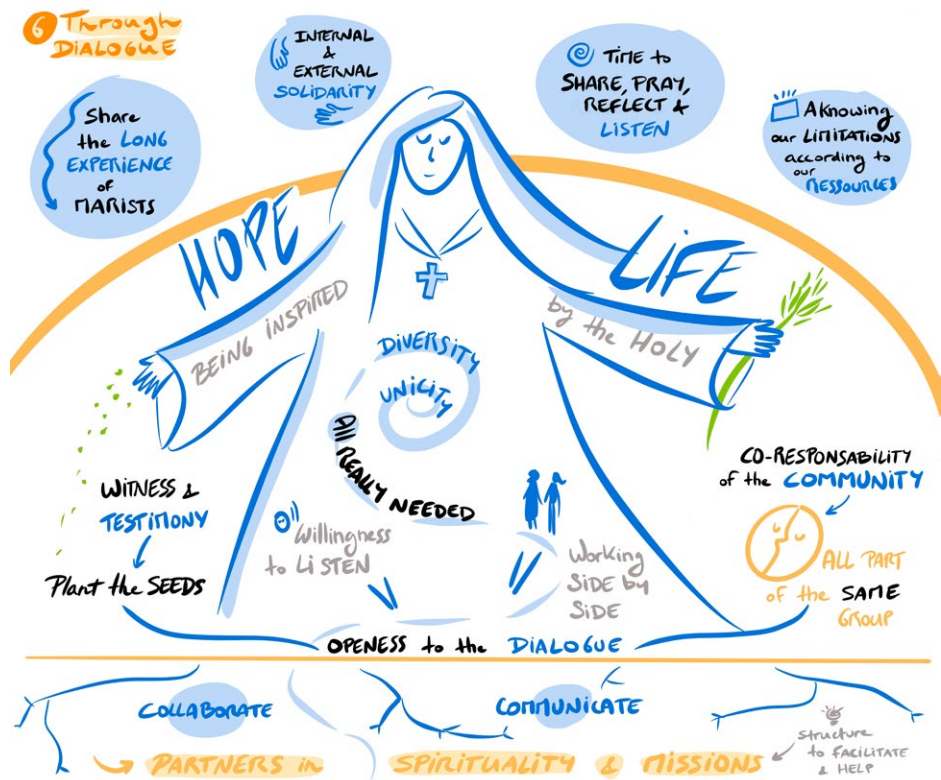 6 Through
DIALOGUE
INTERNAL
&
EXTERNAL
SOLIDARITY
TIME to
SHARE, PRAY,
REFLECT &
LISTEN
Share
the LONG
EXPERIENCE
of
MARISTS
AKNOWING
our LIMITATIONS
according to
our
RESSOURCES
HOPE
LIFE
BEING INSPIRED
by the HOLY
DIVERSITY
UNICITY
All REALLY NEEDED
WITNESS &
TESTIMONY
Plant the SEEDS
Willingness
to LISTEN
Working
SIDE by
SIDE
CO-RESPONSABILITY
of the COMMUNITY
ALL PART
of the SAME
GROUP
OPENESS to the DIALOGUE
COLLABORATE
COMMUNICATE
PARTNERS in SPIRITUALITY & MISSIONS
Structure
to FACILITATE
& HELP